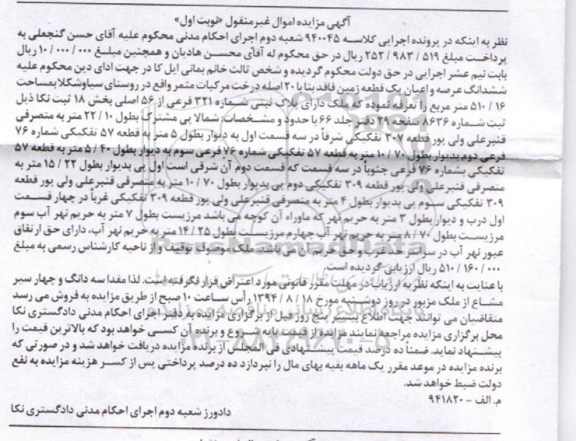 آگهی مزایده اموال غیرمنقول «نوبت اول»
نظر به اینکه در پرونده اجرایی کلاسه ۹۴۰۰۴۵ شعبه دوم اجرای احکام مدنی محکوم علیه آقای حسن گنجعلی به
پرداخت مبلغ ۵۱۹ / ۹۸۳ / ۲۵۲ ریال در حق محکوم له آقای محسن هادیان و همچنین مبلغ ۰۰۰ / ۰۰۰ / ۱۰ ریال
بابت نیم عشر اجرایی در حق دولت محکوم گردیده و شخص ثالث خانم یمانی ایل کا در جهت ادای دین محکوم علیه
ششدانگ عرصه و اعیان یک قطعه زمین فاقد بنا با ۲۰ اصله درخت مرکبات مثمر واقع در روستای سیاوشکلا بمساحت
۱۶ / ۵۱۰ متر مربع را تعرفه نموده که ملک دارای پلاک ثبتی شماره ۳۲۱ فرعی از ۵۶ اصلی بخش ۱۸ ثبت نکا ذیل
ثبت شماره ۸۶۳۶ صفحه ۲۹ دفتر جلد ۶۶ با حدود و مشخصات شمالا پی مشترک بطول ۱۰ / ۲۲ متر به متصرفی
قنبرعلی ولی پور قطعه ۳۰۷ تفکیکی شرقاً در سه قسمت اول به دیوار بطول ۵ متر به قطعه ۵۷ تفکیکی شماره ۷۶
فرعی دوم بدیوار بطول ۷۰ / ۱۰ متر به قطعه ۵۷ تفکیکی شماره ۷۶ فرعی سوم به دیوار بطول ۴۰ / ۵ متر به قطعه ۵۷
تفکیکی بشماره ۷۶ فرعی جنوباً در سه قسمت که قسمت دوم آن شرقی است اول پی بدیوار بطول ۲۲ / ۱۵ متر به
متصرفی قنبرعلی ولی پور قطعه ۳۰۹ تفکیکی دوم پی بدیوار بطول ۷۰ / ۱۰ متر به متصرفی قنبرعلی ولی پور قطعه
۳۰۹ تفکیکی سوم پی بدیوار بطول ۴ متر به متصرفی قنبرعلی ولی پور قطعه ۳۰۹ تفکیکی غرباً در چهار قسمت
اول درب و دیوار بطول ۳ متر به حریم نهر که ماوراء آن کوچه می باشد مرزیست بطول ۷ متر به حریم نهر آب سوم
مرزیست بطول ۷۰ / ۸ متر به حریم نهر آب چهارم مرزیست بطول ۲۵ / ۱۴ متر به حریم نهر آب، دارای حق ارتفاق
عبور نهر آب در سراسر حد غرب و حق حریم آن می باشد. ملک موصوف توقیف و از ناحیه کارشناس رسمی به مبلغ
۰۰۰ / ۱۶۰ / ۵۱۰ ریال ارزیابی گردیده است.
با عنایت به اینکه نظریه ارزیاب در مهلت مقرر قانونی مورد اعتراض قرار نگرفته است. لذا مقدا سه دانگ و چهار سیر
مشاع از ملک مزبور در روز دوشنبه مورخ ۱۸ / ۸ / ۱۳۹۴ رأس ساعت ۱۰ صبح از طریق مزایده به فروش می رسد
متقاضیان می توانند جهت اطلاع بیشتر پنج روز قبل از برگزاری مزایده به دفتر اجرای احکام مدنی دادگستری نکا
محل برگزاری مزایده مراجعه نمایند مزایده از قیمت پایه شروع و برنده آن کسی خواهد بود که بالاترین قیمت را
پیشنهاد نماید. ضمناً ده درصد قیمت پیشنهادی فی المجلس از برنده مزایده دریافت خواهد شد و در صورتی که
برنده مزایده در موعد مقرر یک ماهه بقیه بهای مال را نپردازد ده درصد پرداختی پس از کسر هزینه مزایده به نفع
دولت ضبط خواهد شد.
م. الف - ۹۴۱۸۲۰
دادورز شعبه دوم اجرای احکام مدنی دادگستری نکا